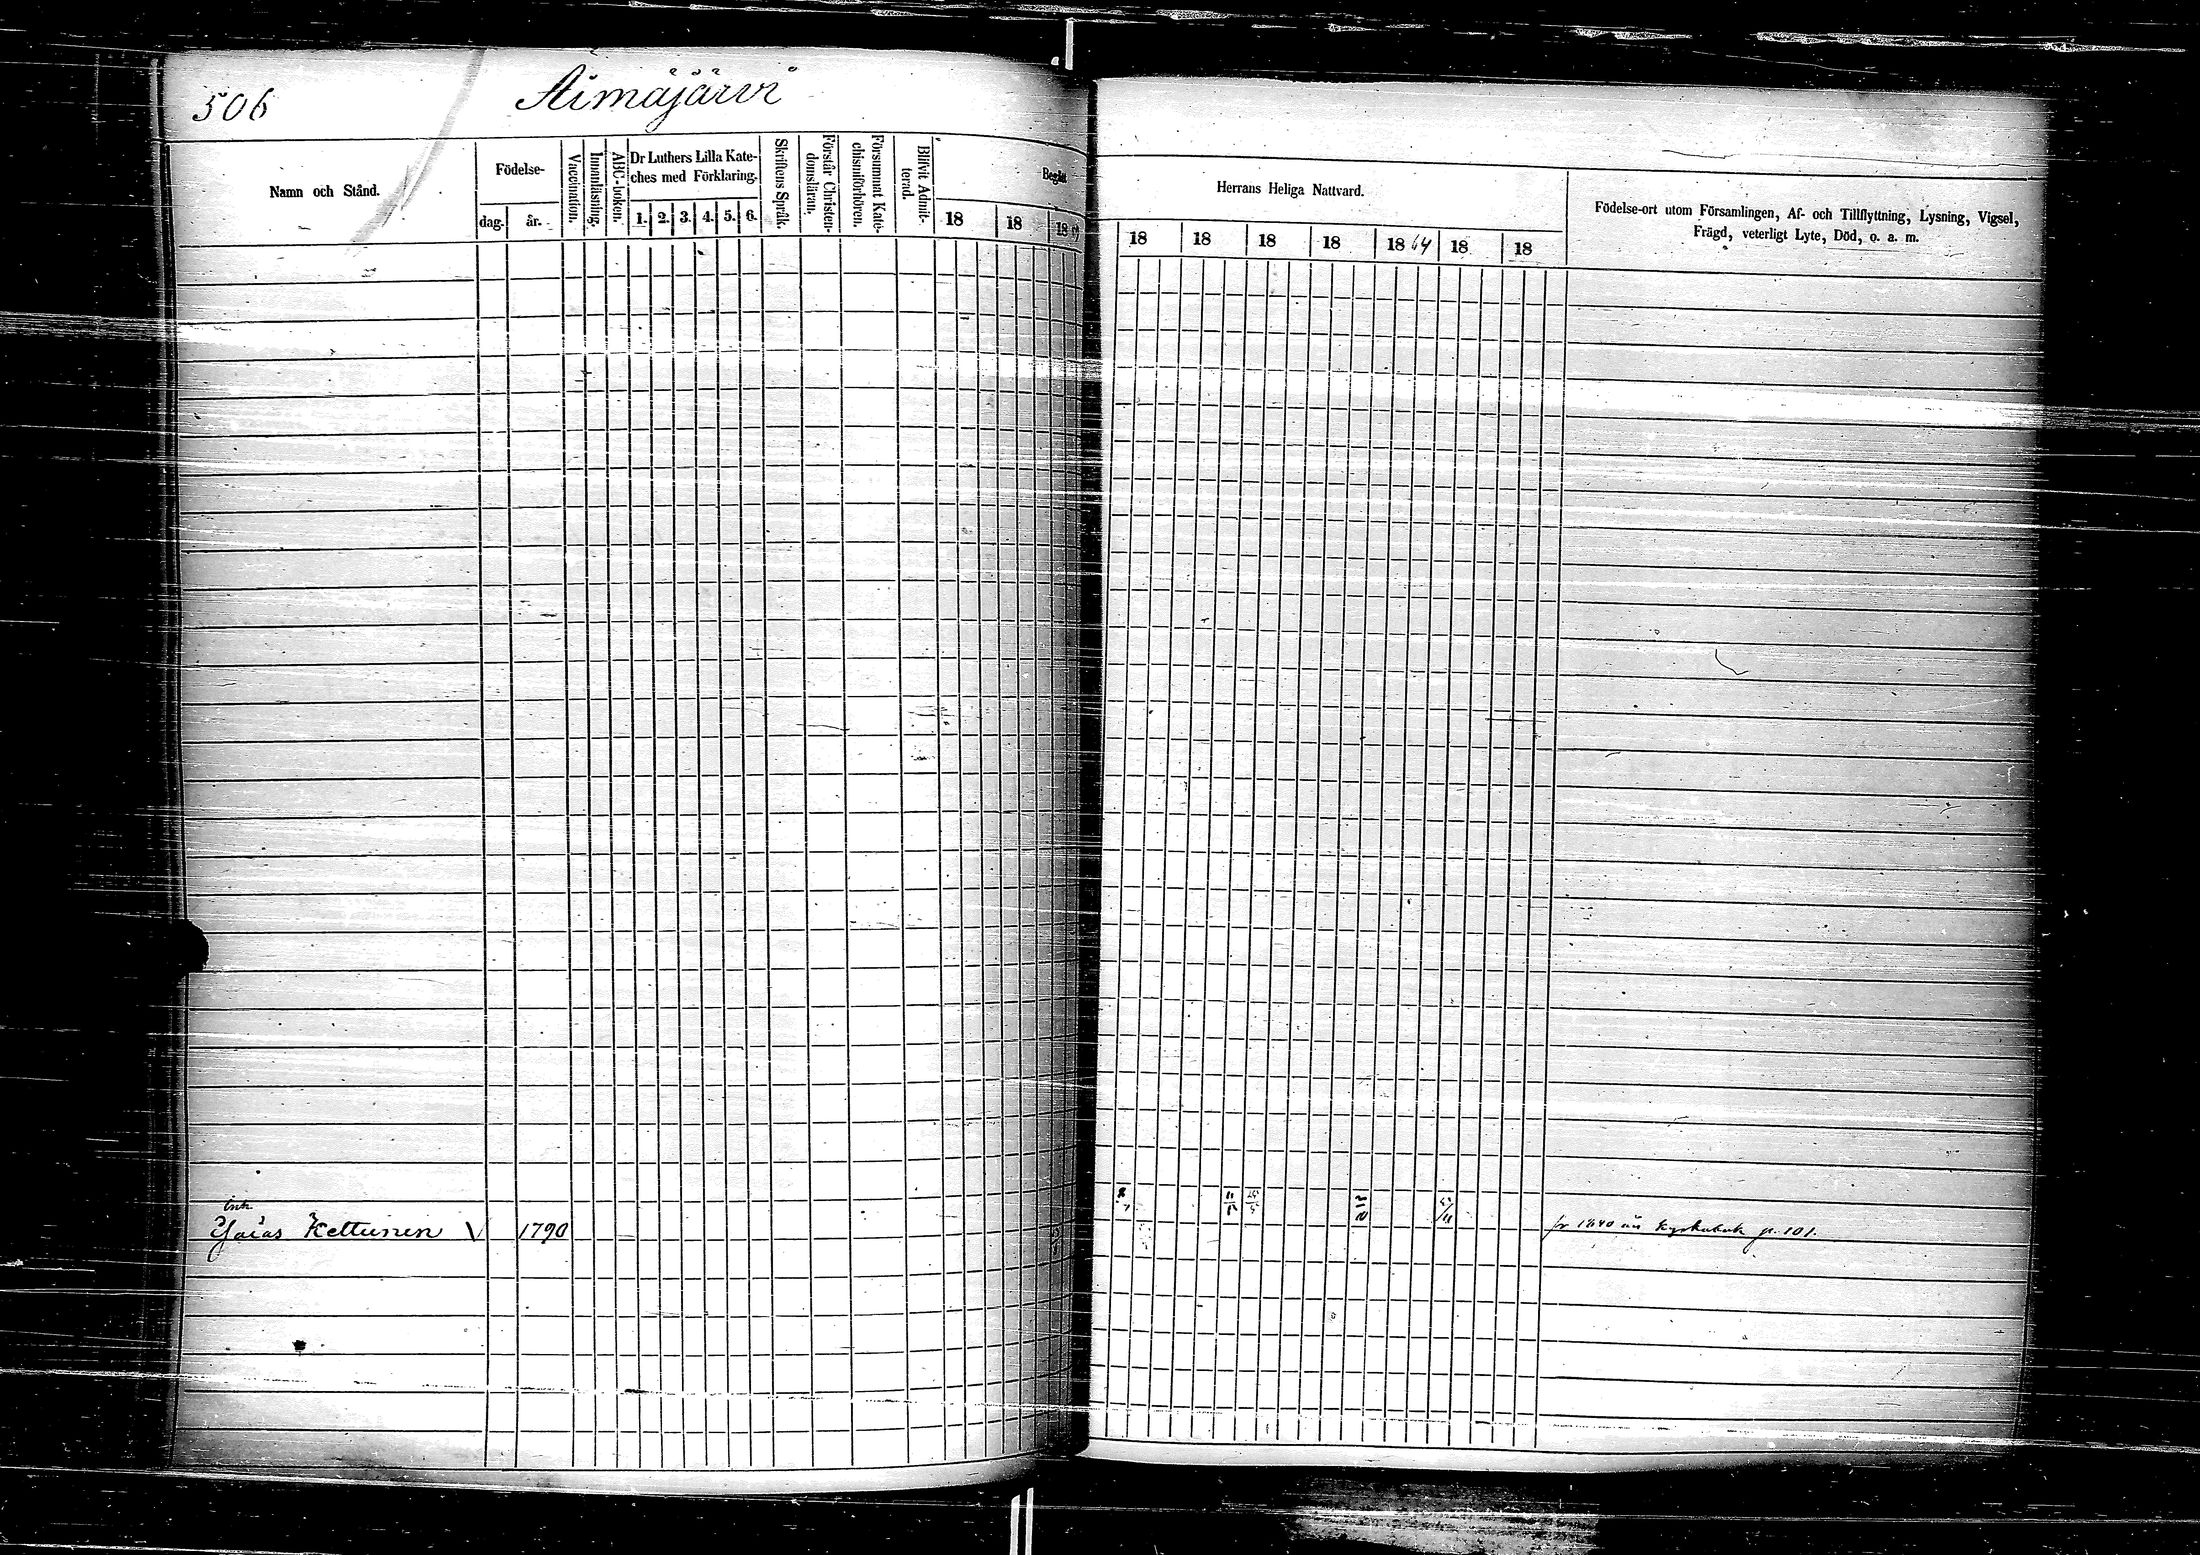 506
Aimäjärvi
Namn och Stånd.
Födelse-
dag.
år.
Vaccination.
Innanläsning.
ABC-boken.
Dr Luthers Lilla Kate-
ches med Förklaring.
1. 2. 3. 4. 5. 6.
Skriftens Språk.
Förstår Christen-
domsläran.
Försummat Kate-
chismiförhören.
Blifvit Admit-
terad.
Begått
18 18 18
Herrans Heliga Nattvard.
18 18 18 18 1864 18 18
Födelse-ort utom Församlingen, Af- och Tillflyttning, Lysning, Vigsel,
Frägd, veterligt Lyte, Död, o. a. m.
Enk.
Kettunen \ 1790
1840 Kyrkobok p. 101.